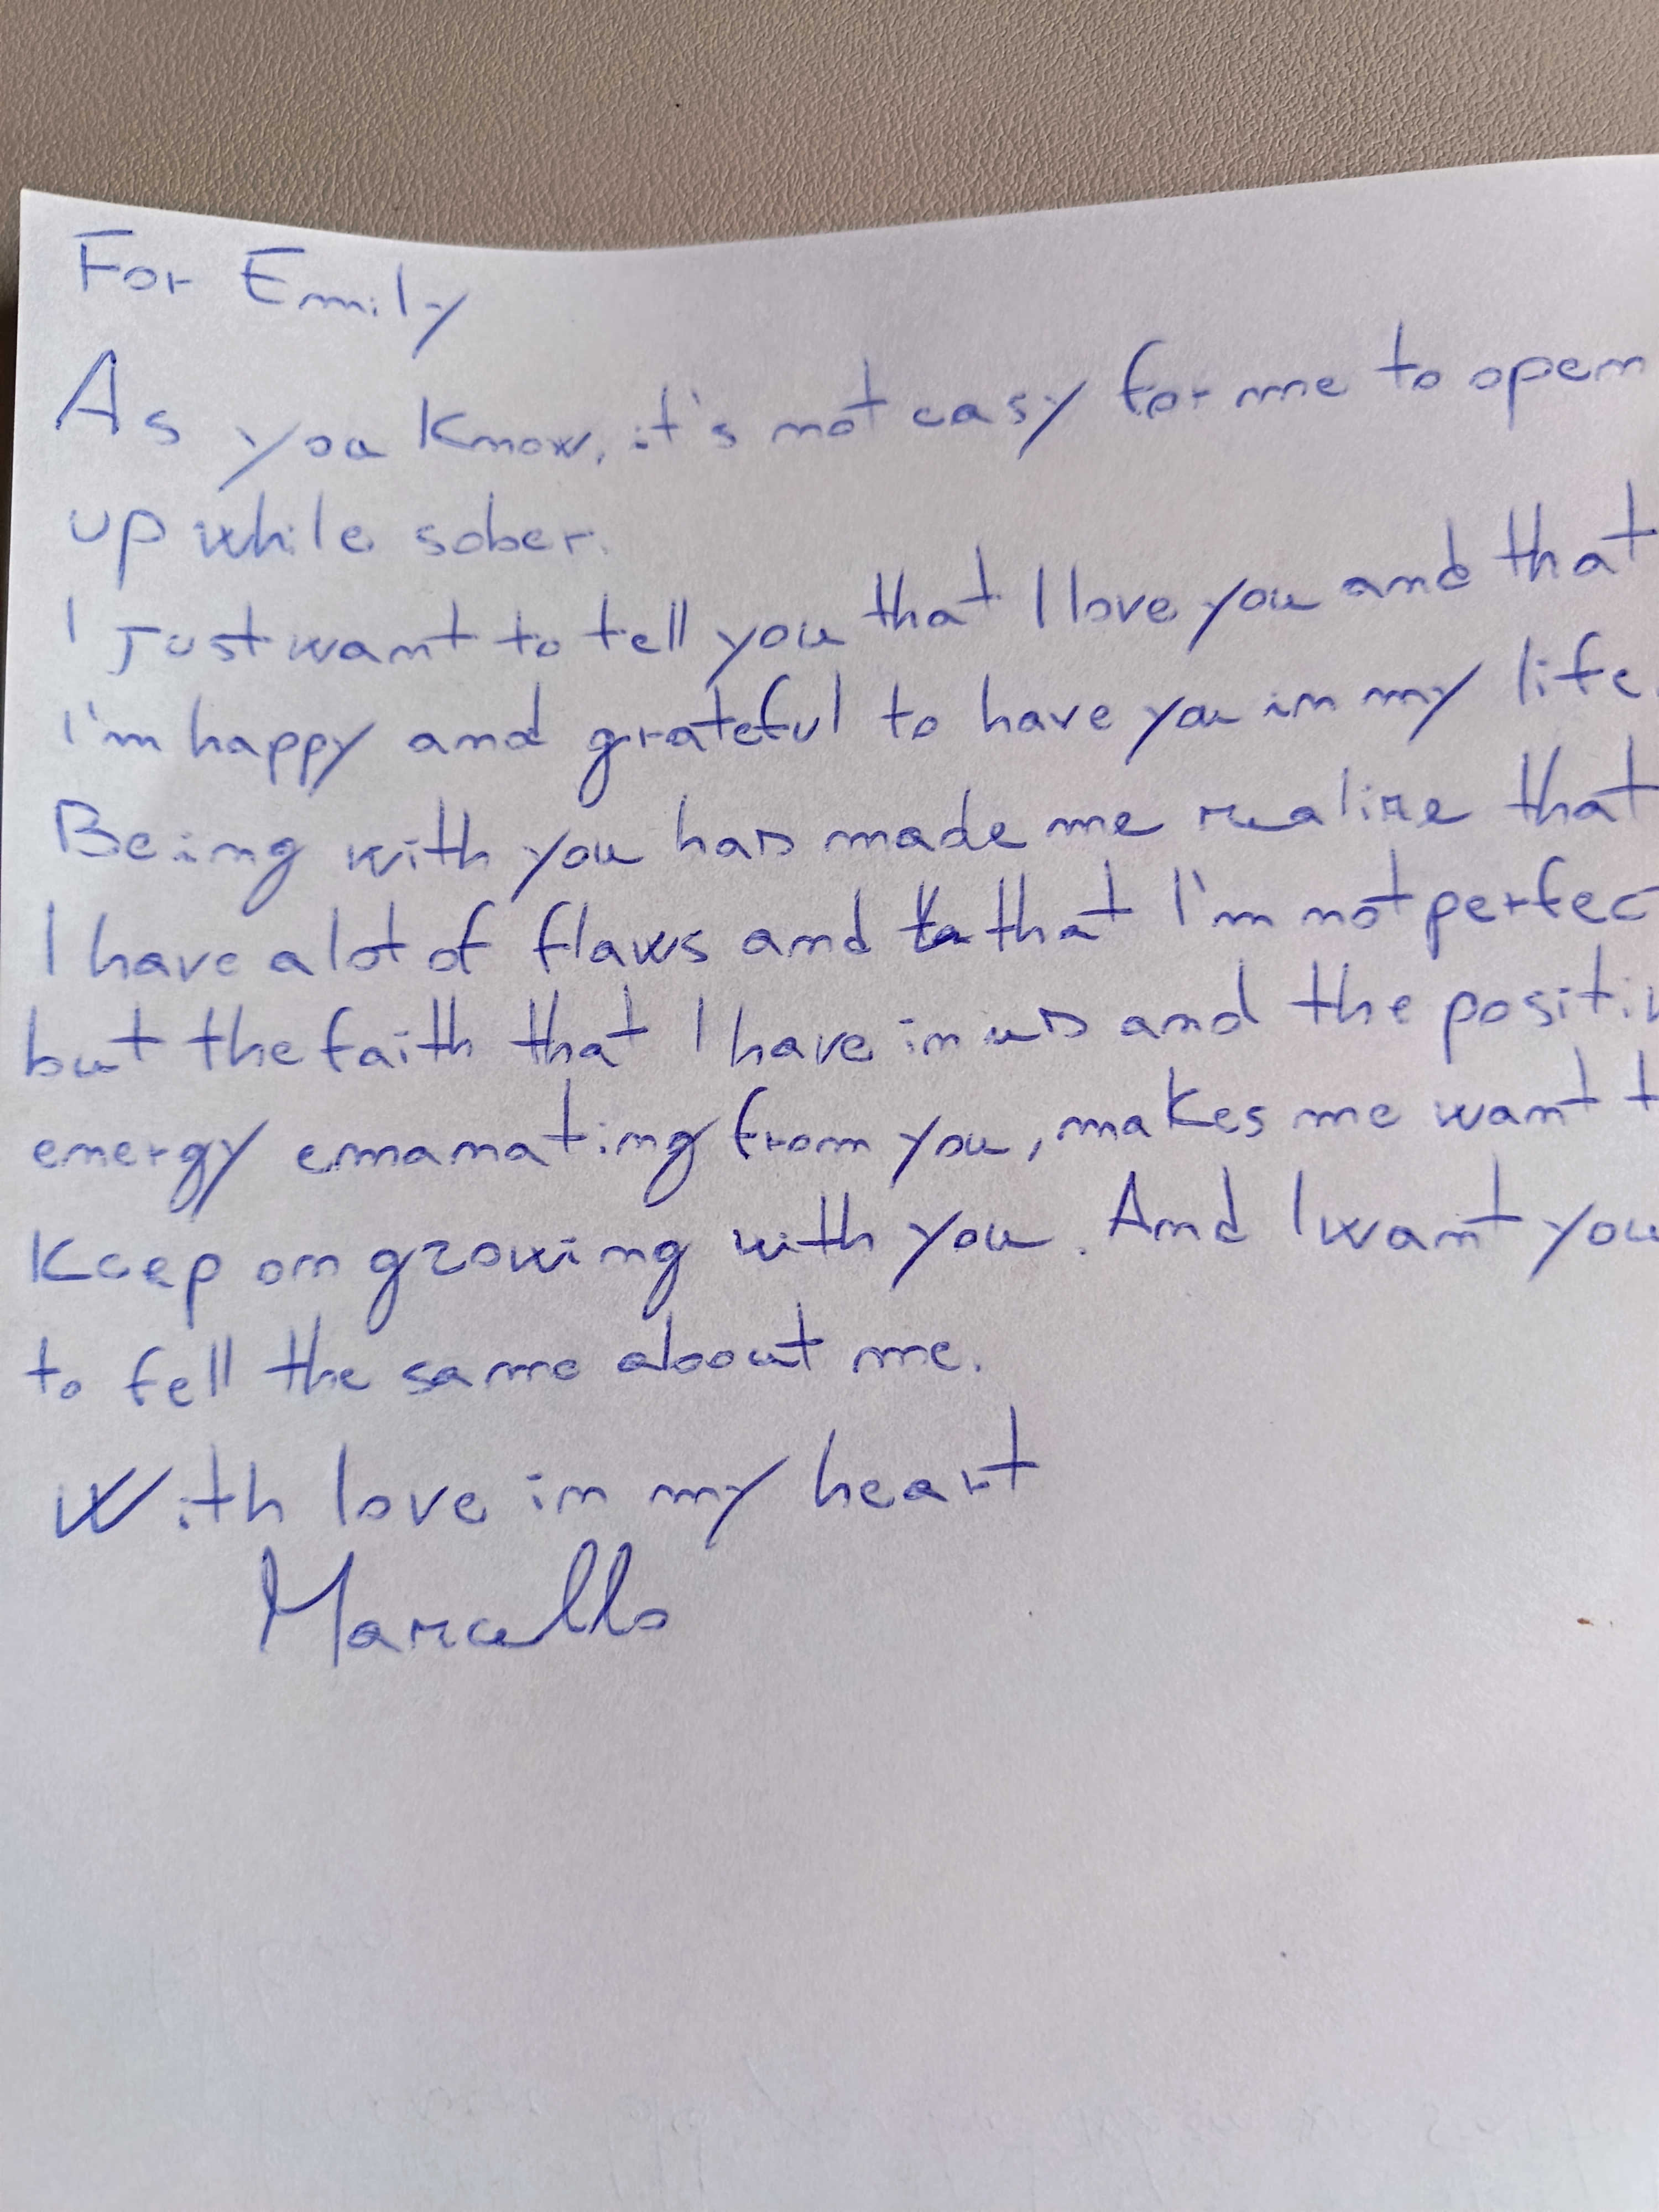 For Emily
As you know, it's not easy for me to open
up while sober.
I Just want to tell you that I love you and that
I'm happy and grateful to have you in my life.
Being with you has made me realize that
I have a lot of flaws and that I'm not perfec
but the faith that I have in us and the positiv
energy emanating from you, makes me want t
Keep on growing with you. And I want you
to fell the same aboout me.
With love in my heart
Marcello